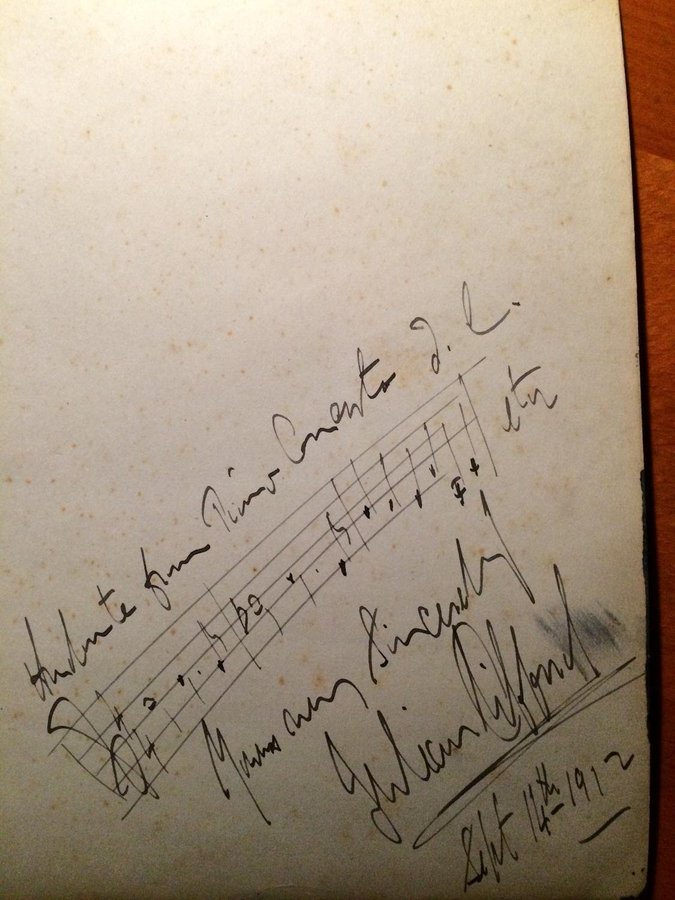 Andante from Piano Concerto J. C.
etc
Yours very Sincerely
Julian Clifford
Sept 14th – 1912